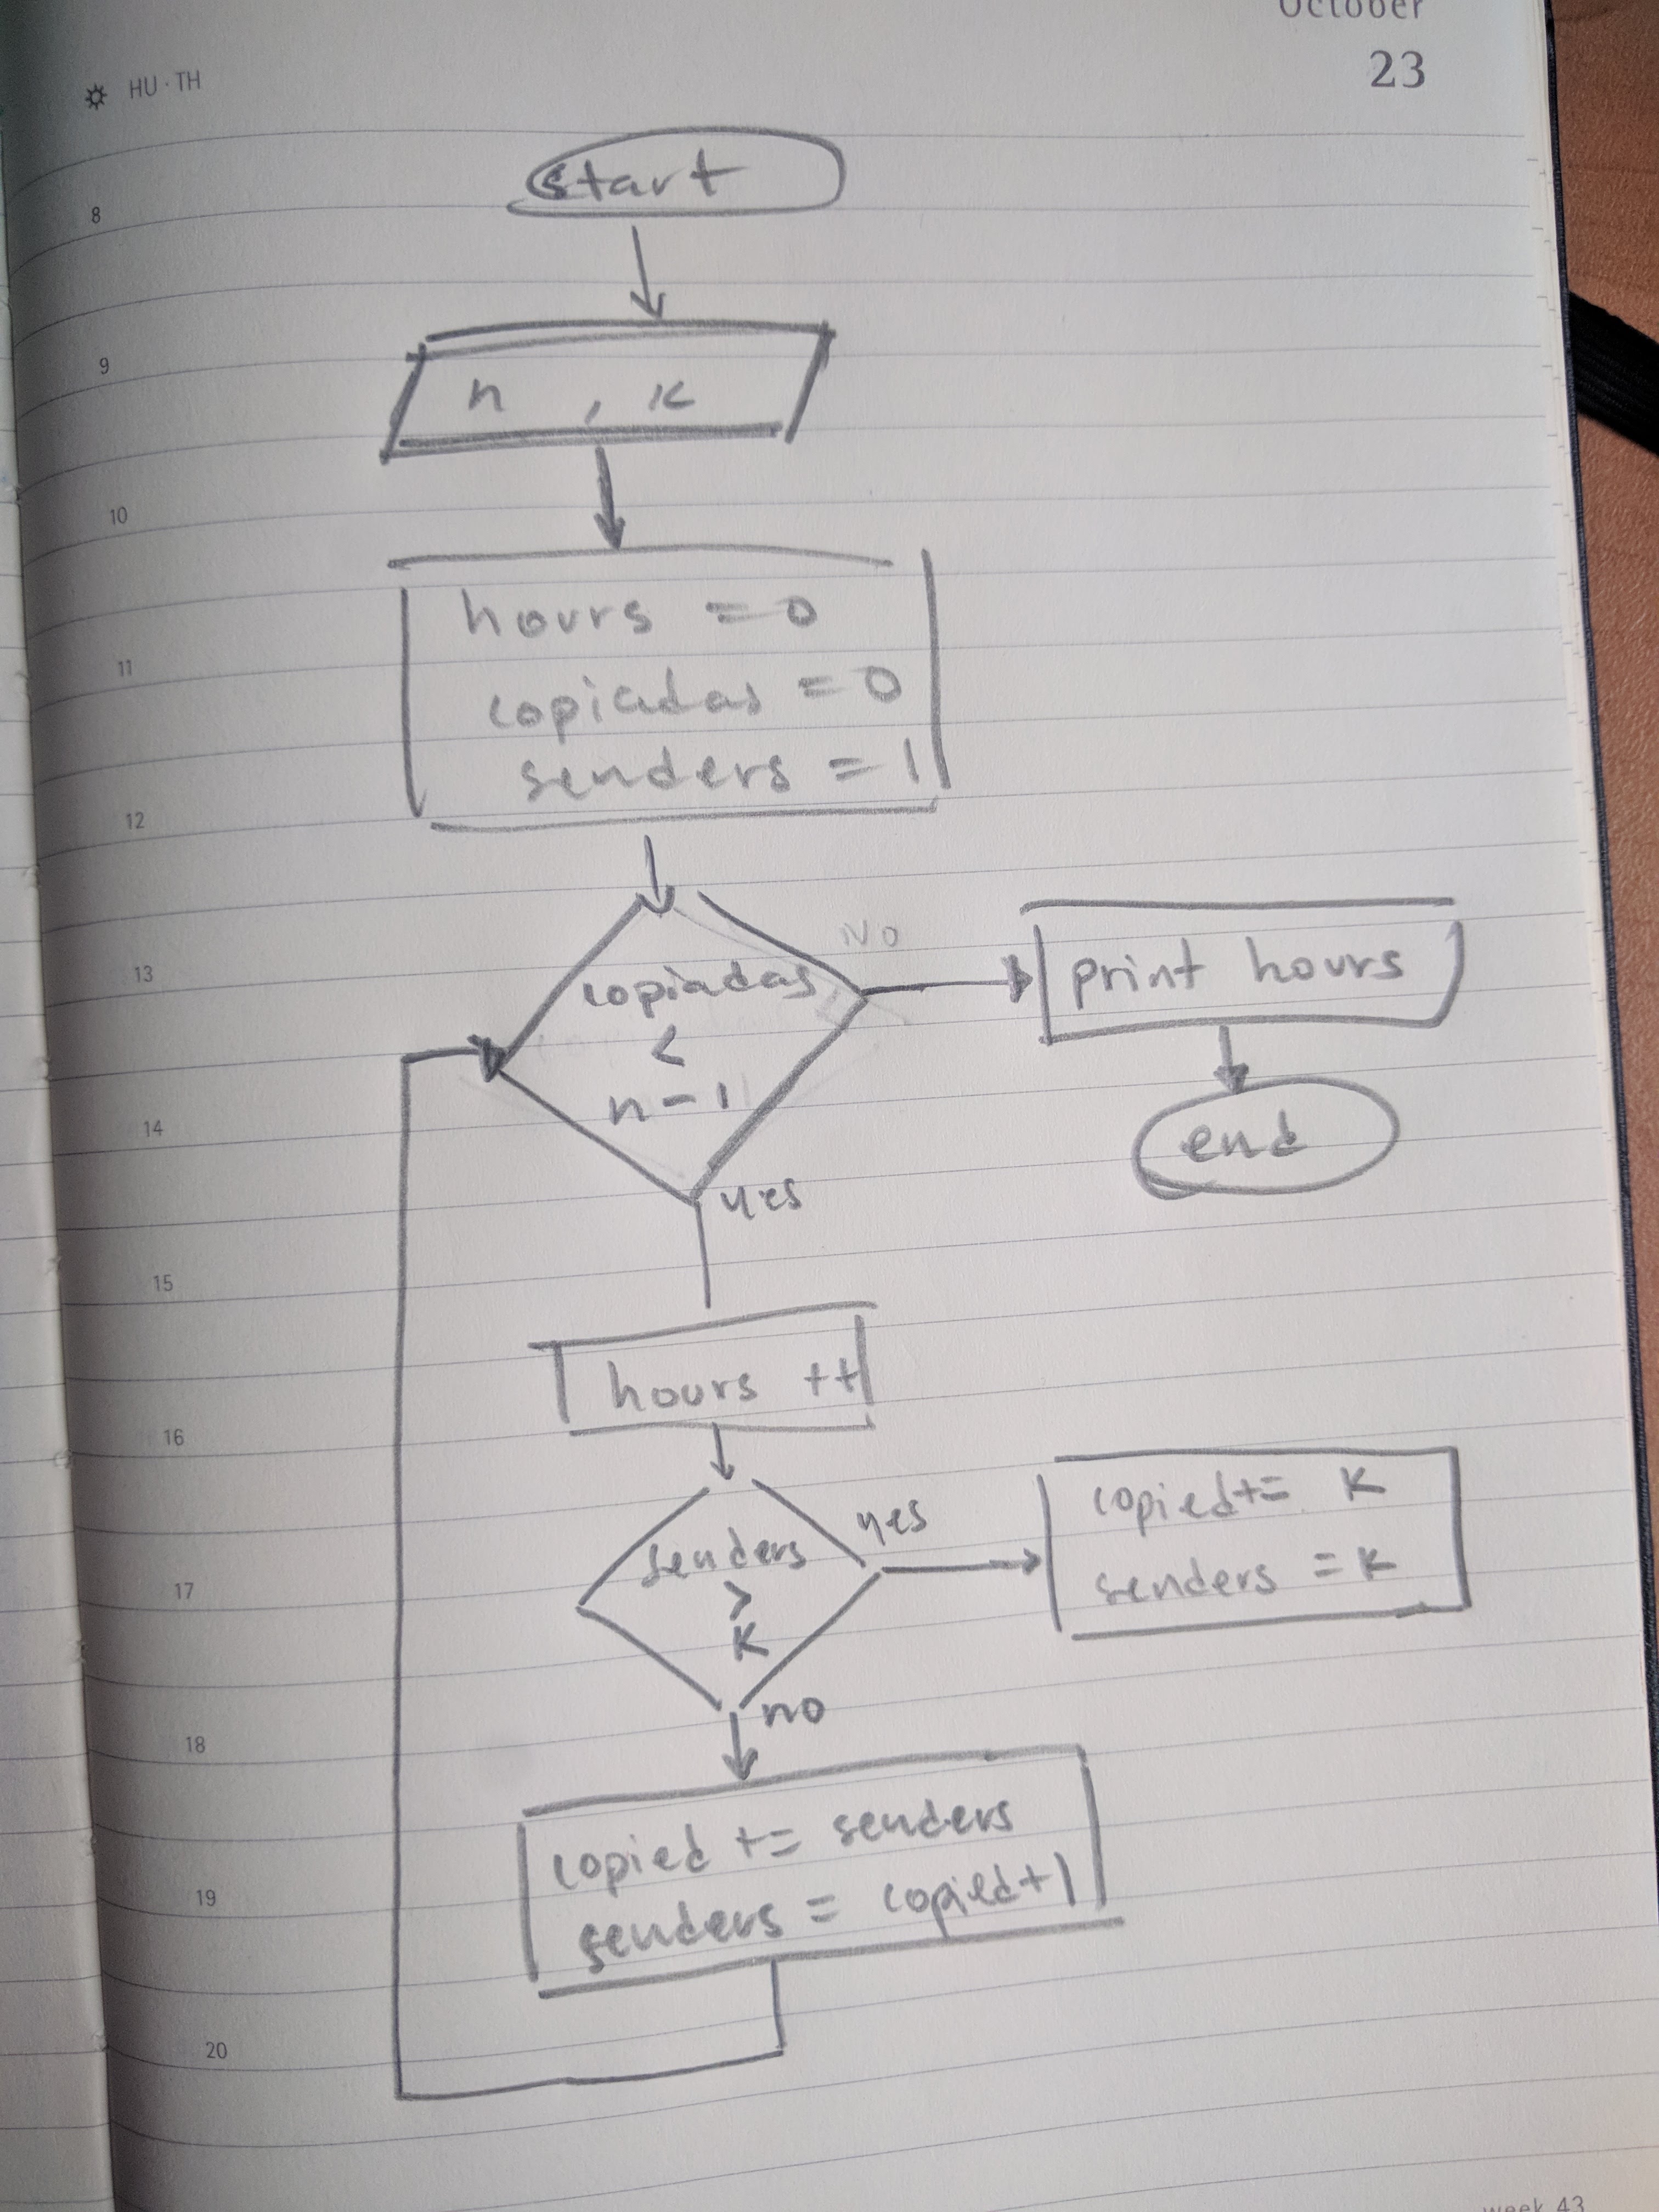 October
23
HU · TH
start
8
9
n , k
10
hours = 0
11
copiadas = 0
senders = 1
12
No
13
copiadas
<
n - 1
print hours
14
end
yes
15
hours ++
16
yes
senders
>
K
copied += K
senders = K
17
no
18
copied += senders
senders = copied+1
19
20
week 43